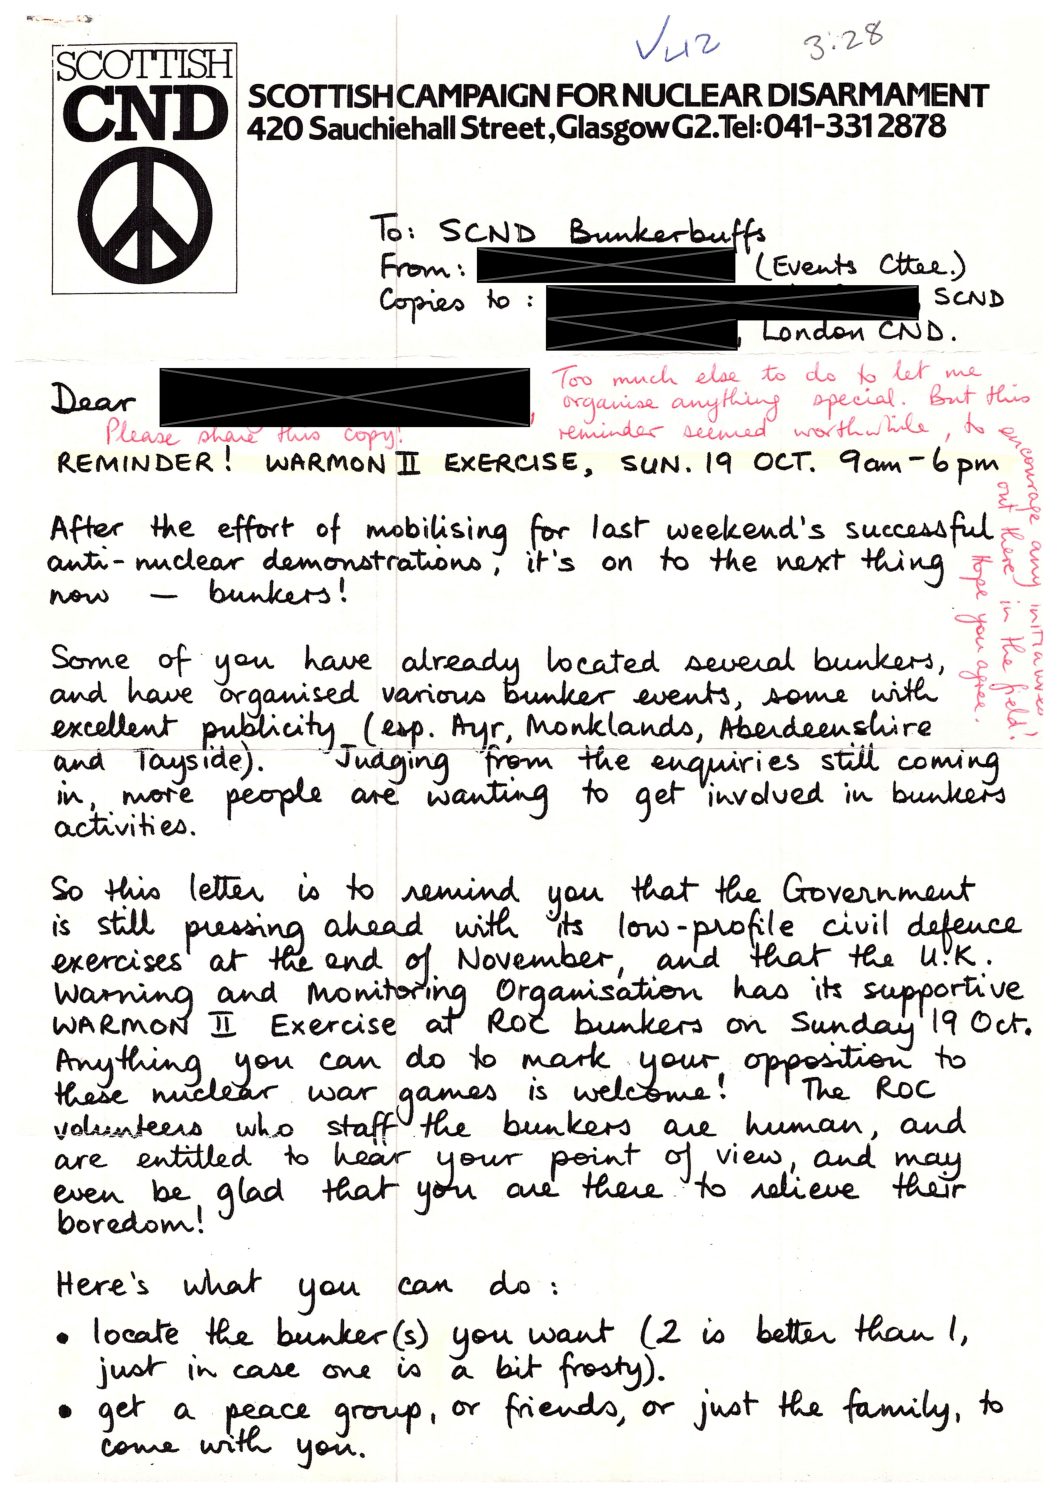 V42
3:28
SCOTTISH
CND
SCOTTISH CAMPAIGN FOR NUCLEAR DISARMAMENT
420 Sauchiehall Street, Glasgow G2. Tel: 041-331 2878
To: SCND Bunkerbuffs
From: (Events Cttee.)
Copies to: , SCND
, London CND.
Dear ,
Please share this copy!
Too much else to do to let me
organise anything special. But this
reminder seemed worthwhile, to
encourage any initiatives
out there in the field!
Hope you agree.
REMINDER! WARMON II EXERCISE, SUN. 19 OCT. 9am-6pm
After the effort of mobilising for last weekend's successful
anti-nuclear demonstrations, it's on to the next thing
now — bunkers!
Some of you have already located several bunkers,
and have organised various bunker events, some with
excellent publicity (esp. Ayr, Monklands, Aberdeenshire
and Tayside). Judging from the enquiries still coming
in, more people are wanting to get involved in bunkers
activities.
So this letter is to remind you that the Government
is still pressing ahead with its low-profile civil defence
exercises at the end of November, and that the U.K.
Warning and Monitoring Organisation has its supportive
WARMON II Exercise at ROC bunkers on Sunday 19 Oct.
Anything you can do to mark your opposition to
these nuclear war games is welcome! The ROC
volunteers who staff the bunkers are human, and
are entitled to hear your point of view, and may
even be glad that you are there to relieve their
boredom!
Here's what you can do:
• locate the bunker(s) you want (2 is better than 1,
just in case one is a bit frosty).
• get a peace group, or friends, or just the family, to
come with you.